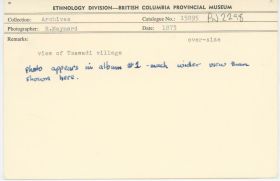 ETHNOLOGY DIVISION—BRITISH COLUMBIA PROVINCIAL MUSEUM
Collection: Archives Catalogue No.: PN 2298
Photographer: R.Maynard Date: 1873
Remarks: over-size
view of Tsawadi village
photo appears in album #1 - much wider view than
shown here.